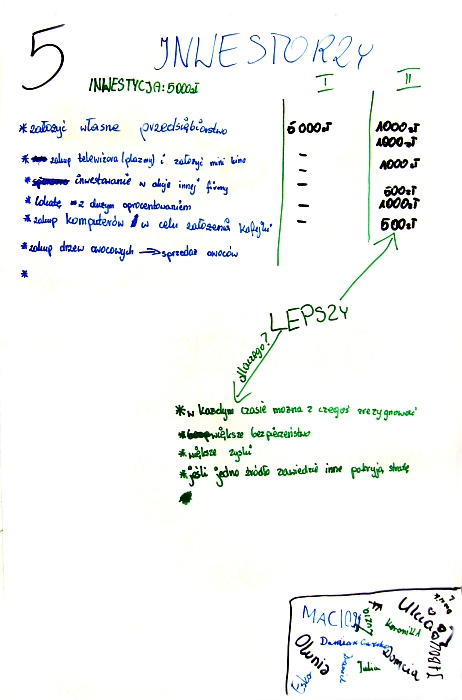 5 INWESTORZY
INWESTYCJA: 5000zł I II
* założyć własne przedsiębiorstwo 5000zł 1000zł
1000zł
* zakup telewizora (plazmy) i założyć mini kino – 1000zł
* inwestowanie w akcje innej firmy – 500zł
* lokatę z dużym oprocentowaniem – 1000zł
* zakup komputerów w celu założenia kafejki – 500zł
* zakup drzew owocowych → sprzedaż owoców
*
LEPSZY
dlaczego?
* w każdym czasie można z czegoś zrezygnować
* większe bezpieczeństwo
* większe zyski
* jeśli jedno źródło zawiedzie inne pokryją stratę
Ulka
MACIO
Weronika
Damian
Olunia
Domcia
Dawid
Julia